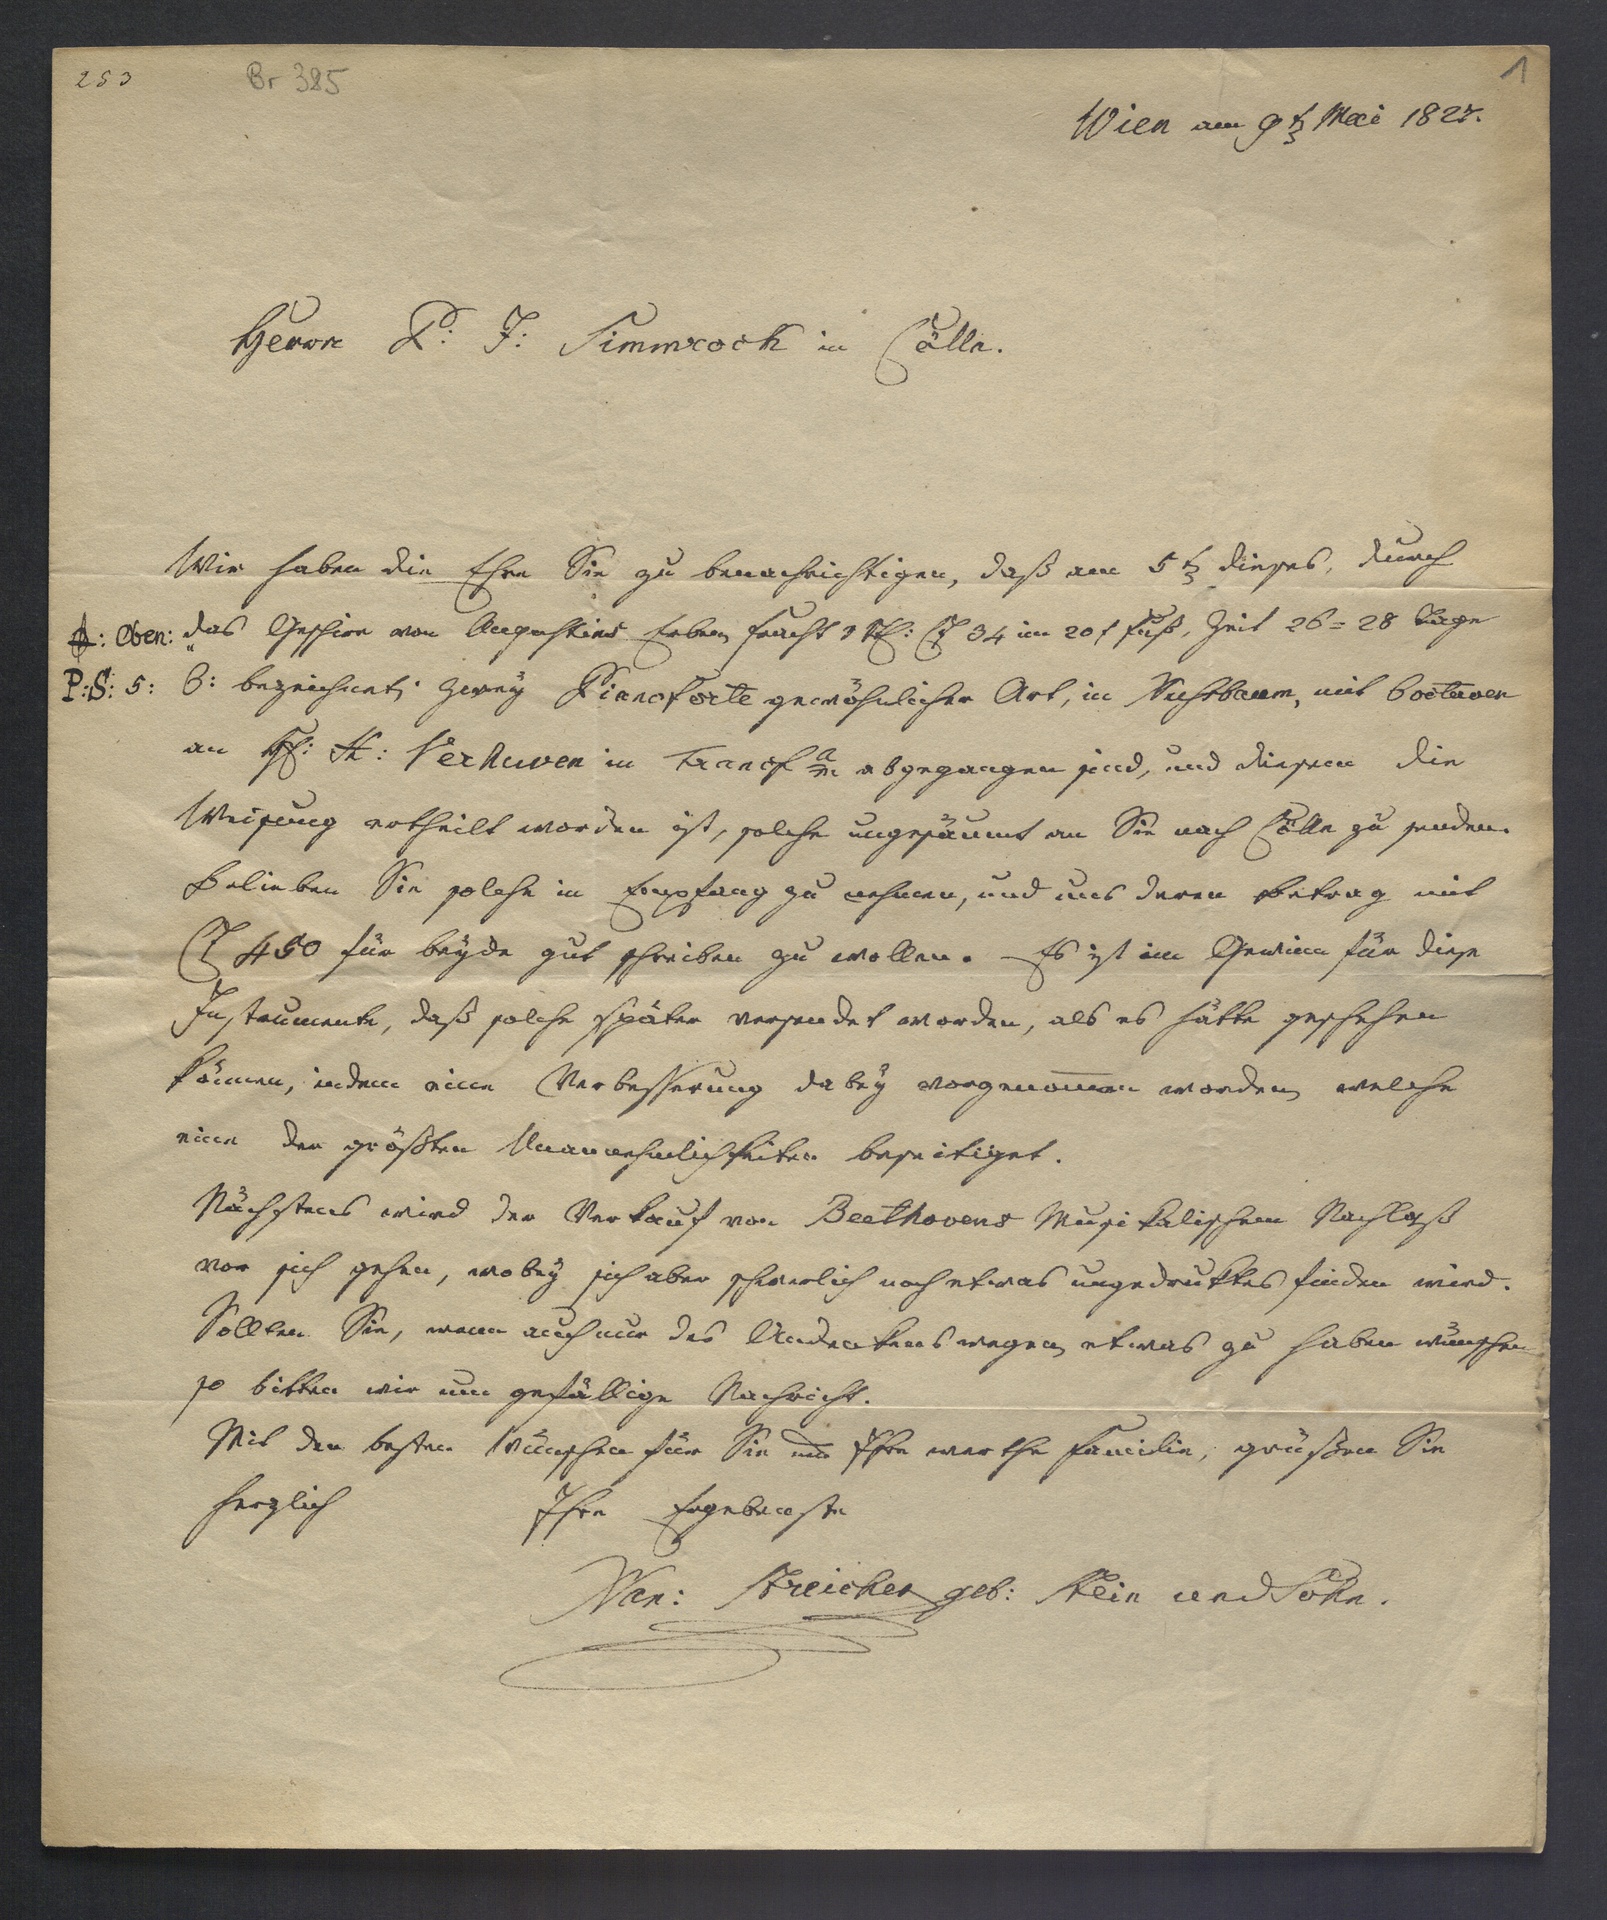 253
Br 385
1
Wien am 9t Mai 1827.
Herrn P: J: Simmrock in Cölln.
Wir haben die Ehre Sie zu benachrichtigen, daß am 5t dieses, durch
: Oben: das Geschirr von Augustins Erben Fracht 34 im 20 f Fuß, Zeit 26 = 28 Tage
P:S: 5: 6: bezeichnet, zwey Pianoforte gewöhnlicher Art, in Nussbaum, mit 6 octaven
an H: Verhuven in abgegangen sind, und diesem die
Weisung ertheilt worden ist, solche ungesäumt an Sie nach Cölln zu senden.
Belieben Sie solche in Empfang zu nehmen, und uns deren Betrag mit
450 für beyde gut schreiben zu wollen. – Es ist ein Gewinn für diese
Instrumente, daß solche später versendet worden, als es hätte geschehen
können, indem eine Verbesserung dabey vorgenomen worden, welche
eine der größten Unannehmlichkeiten beseitiget.
Nächstens wird der Verkauf von Beethovens Musikalischem Nachlaß
vor sich gehen, wobey sich aber schwerlich noch etwas ungedruktes finden wird.
Sollten Sie, wenn auch nur des Andenkens wegen, etwas zu haben wünschen
so bitten wir um gefällige Nachricht.
Mit den besten Wünschen für Sie und Ihre werthe Familie, grüßen Sie
herzlich Ihre Ergebenste
Nan: Streicher geb: Stein und Sohn.